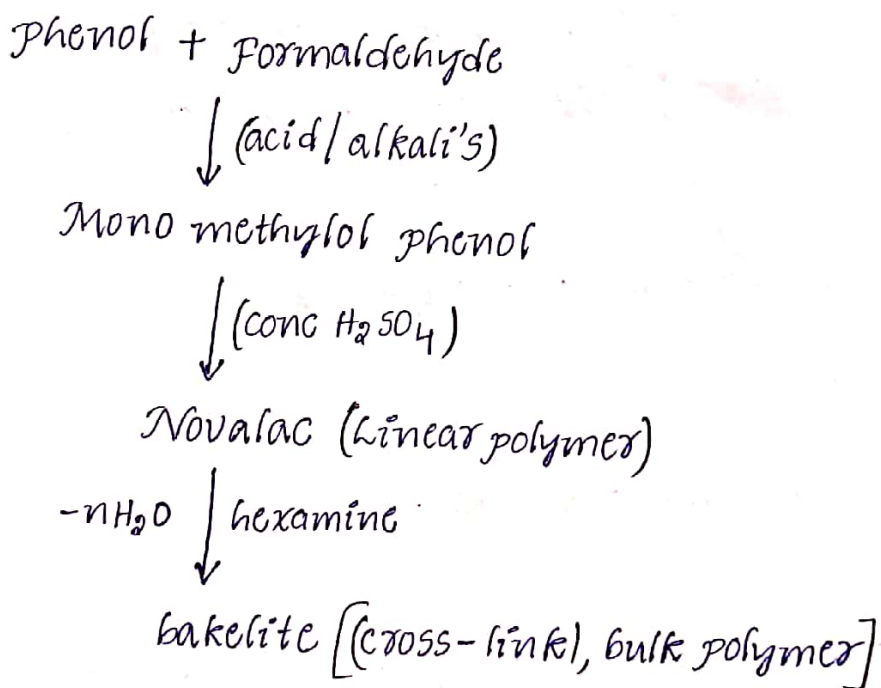 Phenol + Formaldehyde
(acid/alkali's)
Mono methylol phenol
(conc H₂SO₄)
Novalac (Linear polymer)
-nH₂O hexamine
bakelite [(cross-link), bulk polymer]